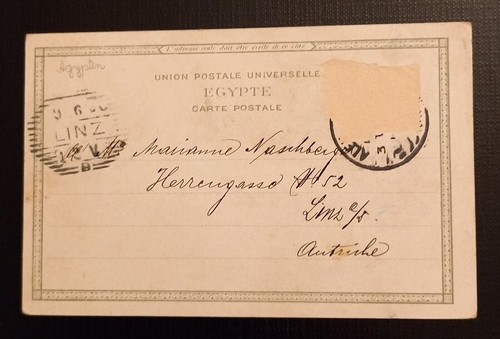 L'adresse seule doit être écrite de ce côté
Ägypten
UNION POSTALE UNIVERSELLE
EGYPTE
CARTE POSTALE
9 6
LINZ
B
Marianne Naschberger
Herrengasse 52
Linz a/D.
Autriche